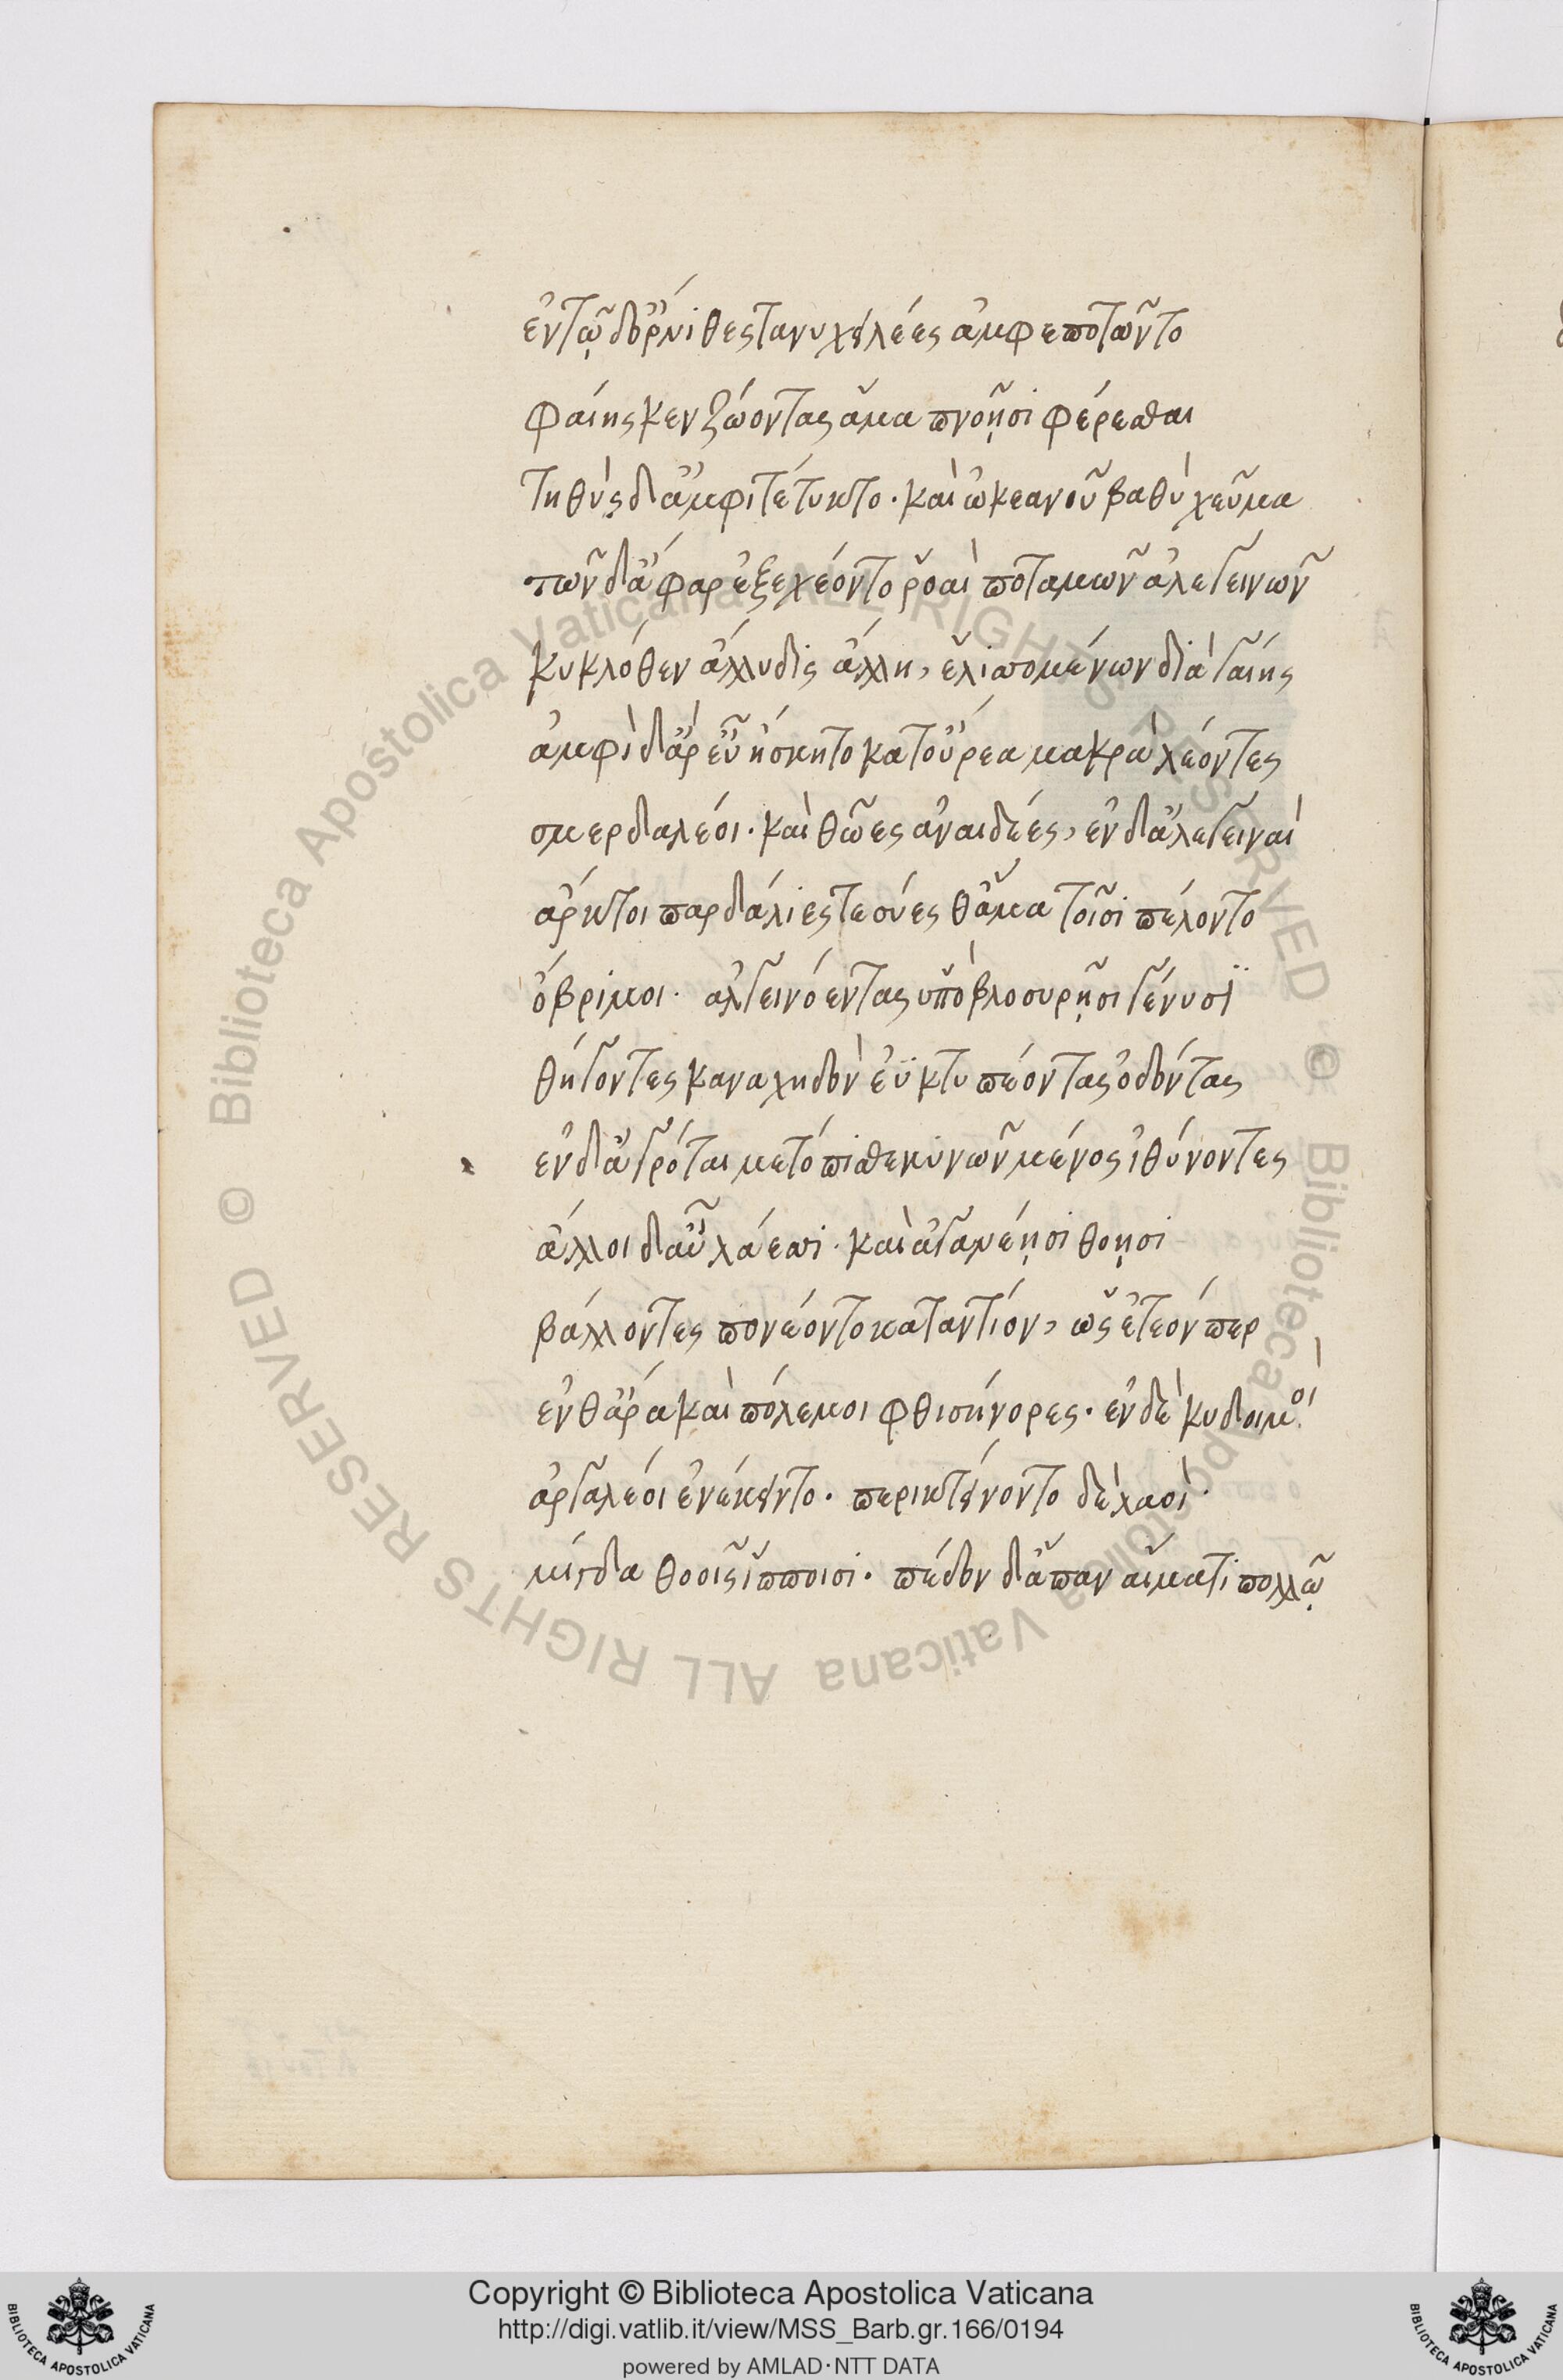 ἐν τῷ δ' ὄρνιθες τανυχειλέες ἀμφεποτῶντο
φαίης κεν ζώοντας ἅμα πνοῇσι φέρεσθαι
τηθὺς δ' ἀμφιτέτυκτο· καὶ ὠκεανοῦ βαθὺ χεῦμα
τῶν δ' ἄφαρ ἐξεχέοντο ῥοαὶ ποταμῶν ἀλεγεινῶν
κυκλόθεν ἄλλυδις ἄλλη, ἑλισσομένων διὰ γαίης
ἀμφὶ δ' ἄρ' εὖ ἤσκητο κατ' οὔρεα μακρὰ λέοντες
σμερδαλέοι· καὶ θῶες ἀναιδέες, ἐν δ' ἀλεγειναὶ
ἄρκτοι παρδάλιές τε σύες θ' ἅμα τοῖσι πέλοντο
ὄβριμοι· ἀλγεινόεντας ὑπὸ βλοσυρῇσι γένυσϊ
θήγοντες καναχηδὸν ἐϋκτυπέοντας ὀδόντας
ἐν δ' ἀγρόται μετόπισθε κυνῶν μένος ἰθύνοντες
ἄλλοι δ' αὖ λάεσσι· καὶ αἰγανέῃσι θοῇσι
βάλλοντες πονέοντο καταντίον, ὡς ἐτεόν περ
ἐν θ' ἄρα καὶ πόλεμοι φθισήνορες· ἐν δὲ κυδοιμοὶ
ἀργαλέοι ἐνέκειντο· περικτείνοντο δὲ λαοὶ·
μίγδα θοοῖς ἵπποισι· πέδον δ' ἅπαν αἵματι πολλῷ
Copyright © Biblioteca Apostolica Vaticana
http://digi.vatlib.it/view/MSS_Barb.gr.166/0194
powered by AMLAD·NTT DATA
BIBLIOTECA APOSTOLICA VATICANA
BIBLIOTECA APOSTOLICA VATICANA
© Biblioteca Apostolica Vaticana ALL RIGHTS RESERVED
© Biblioteca Apostolica Vaticana ALL RIGHTS RESERVED